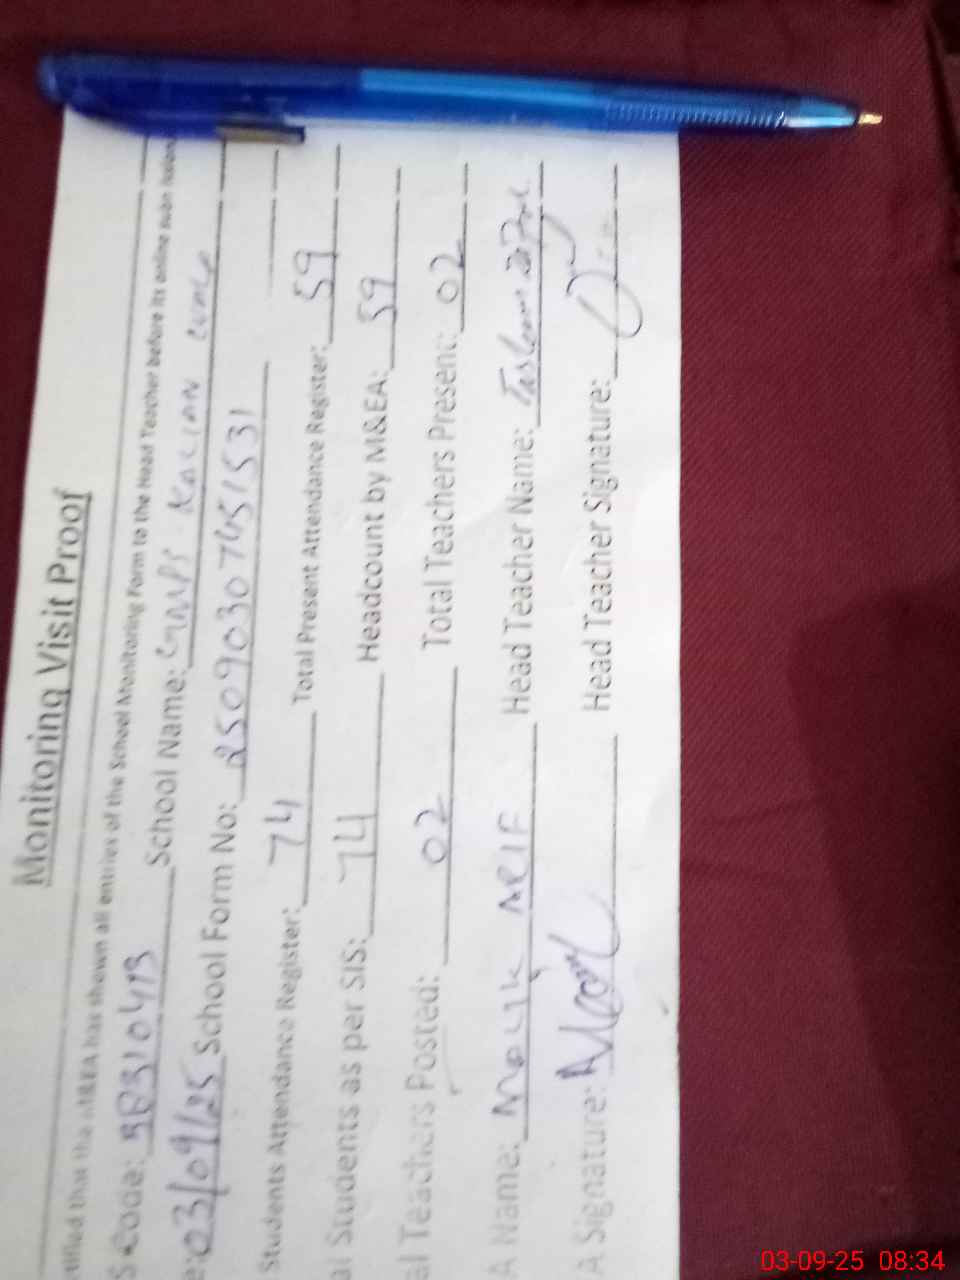 Monitoring Visit Proof
tified that the M&EA has shown all entries of the School Monitoring Form to the Head Teacher before its online
S Code: School Name: GMPS
e: 03/09/25 School Form No: 25090307451531
Students Attendance Register: 74 Total Present Attendance Register: 59
al Students as per SIS: 74 Headcount by M&EA: 59
al Teachers Posted: 02 Total Teachers Present: 02
A Name: Malik Arif Head Teacher Name:
A Signature: Head Teacher Signature:
03-09-25 08:34